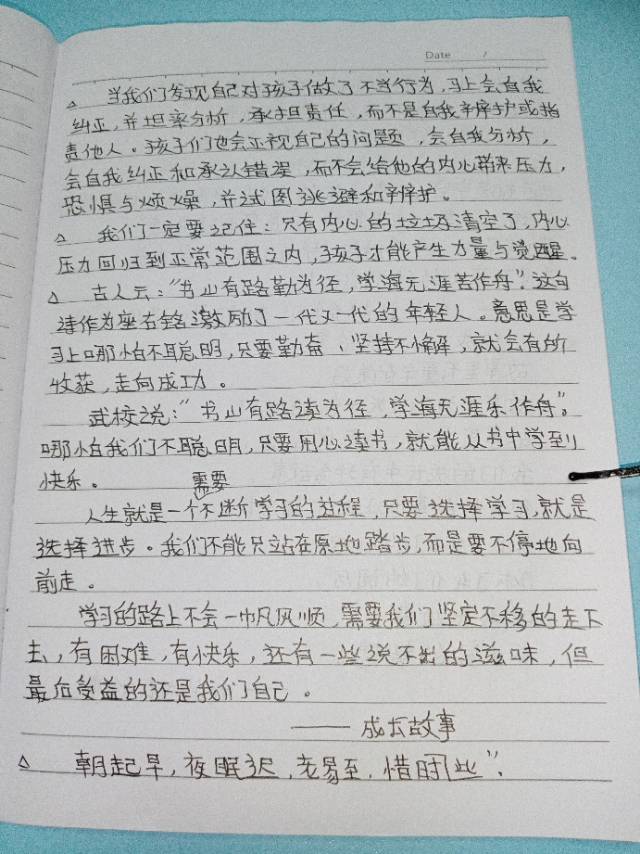 Date /
△ 当我们发现自己对孩子做了不当行为,马上会自我
纠正,并坦率分析,承担责任,而不是自我辩护或指
责他人。孩子们也会正视自己的问题,会自我分析,
会自我纠正和承认错误,而不会给他的内心带来压力,
恐惧与烦燥,并试图逃避和辩护。
△ 我们一定要记住:只有内心的垃圾清空了,内心
压力回归到正常范围之内,孩子才能产生力量与觉醒。
△ 古人云:“书山有路勤为径,学海无涯苦作舟”。这句
读作为座右铭激励了一代又一代的年轻人。意思是学
习上哪怕不聪明,只要勤奋、坚持不懈,就会有所
收获,走向成功。
武校说:“书山有路读为径,学海无涯乐作舟”。
哪怕我们不聪明,只要用心读书,就能从书中学到
快乐。 需要
人生就是一个不断学习的过程,只要选择学习,就是
选择进步。我们不能只站在原地踏步,而是要不停地向
前走。
学习的路上不会一帆风顺,需要我们坚定不移的走下
去,有困难,有快乐,还有一些说不出的滋味,但
最后受益的还是我们自己。
—— 成长故事
△ 朝起早,夜眠迟,老易至,惜时此”.